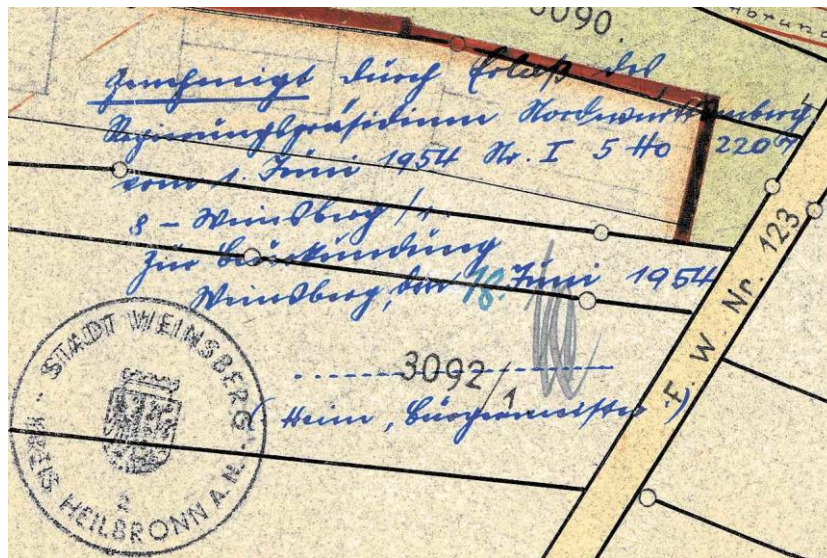 3090.
Genehmigt durch Erlaß des
Regierungspräsidium Nordwürttemberg
vom 1. Juni 1954 Nr. I 5 Ho 2207
8 - Weinsberg /1.
Zur Beurkundung
Weinsberg, den 18. Juni 1954
3092/1
(Heim, Bürgermeister)
F. W. Nr. 123
STADT WEINSBERG
KREIS HEILBRONN A.N.
2